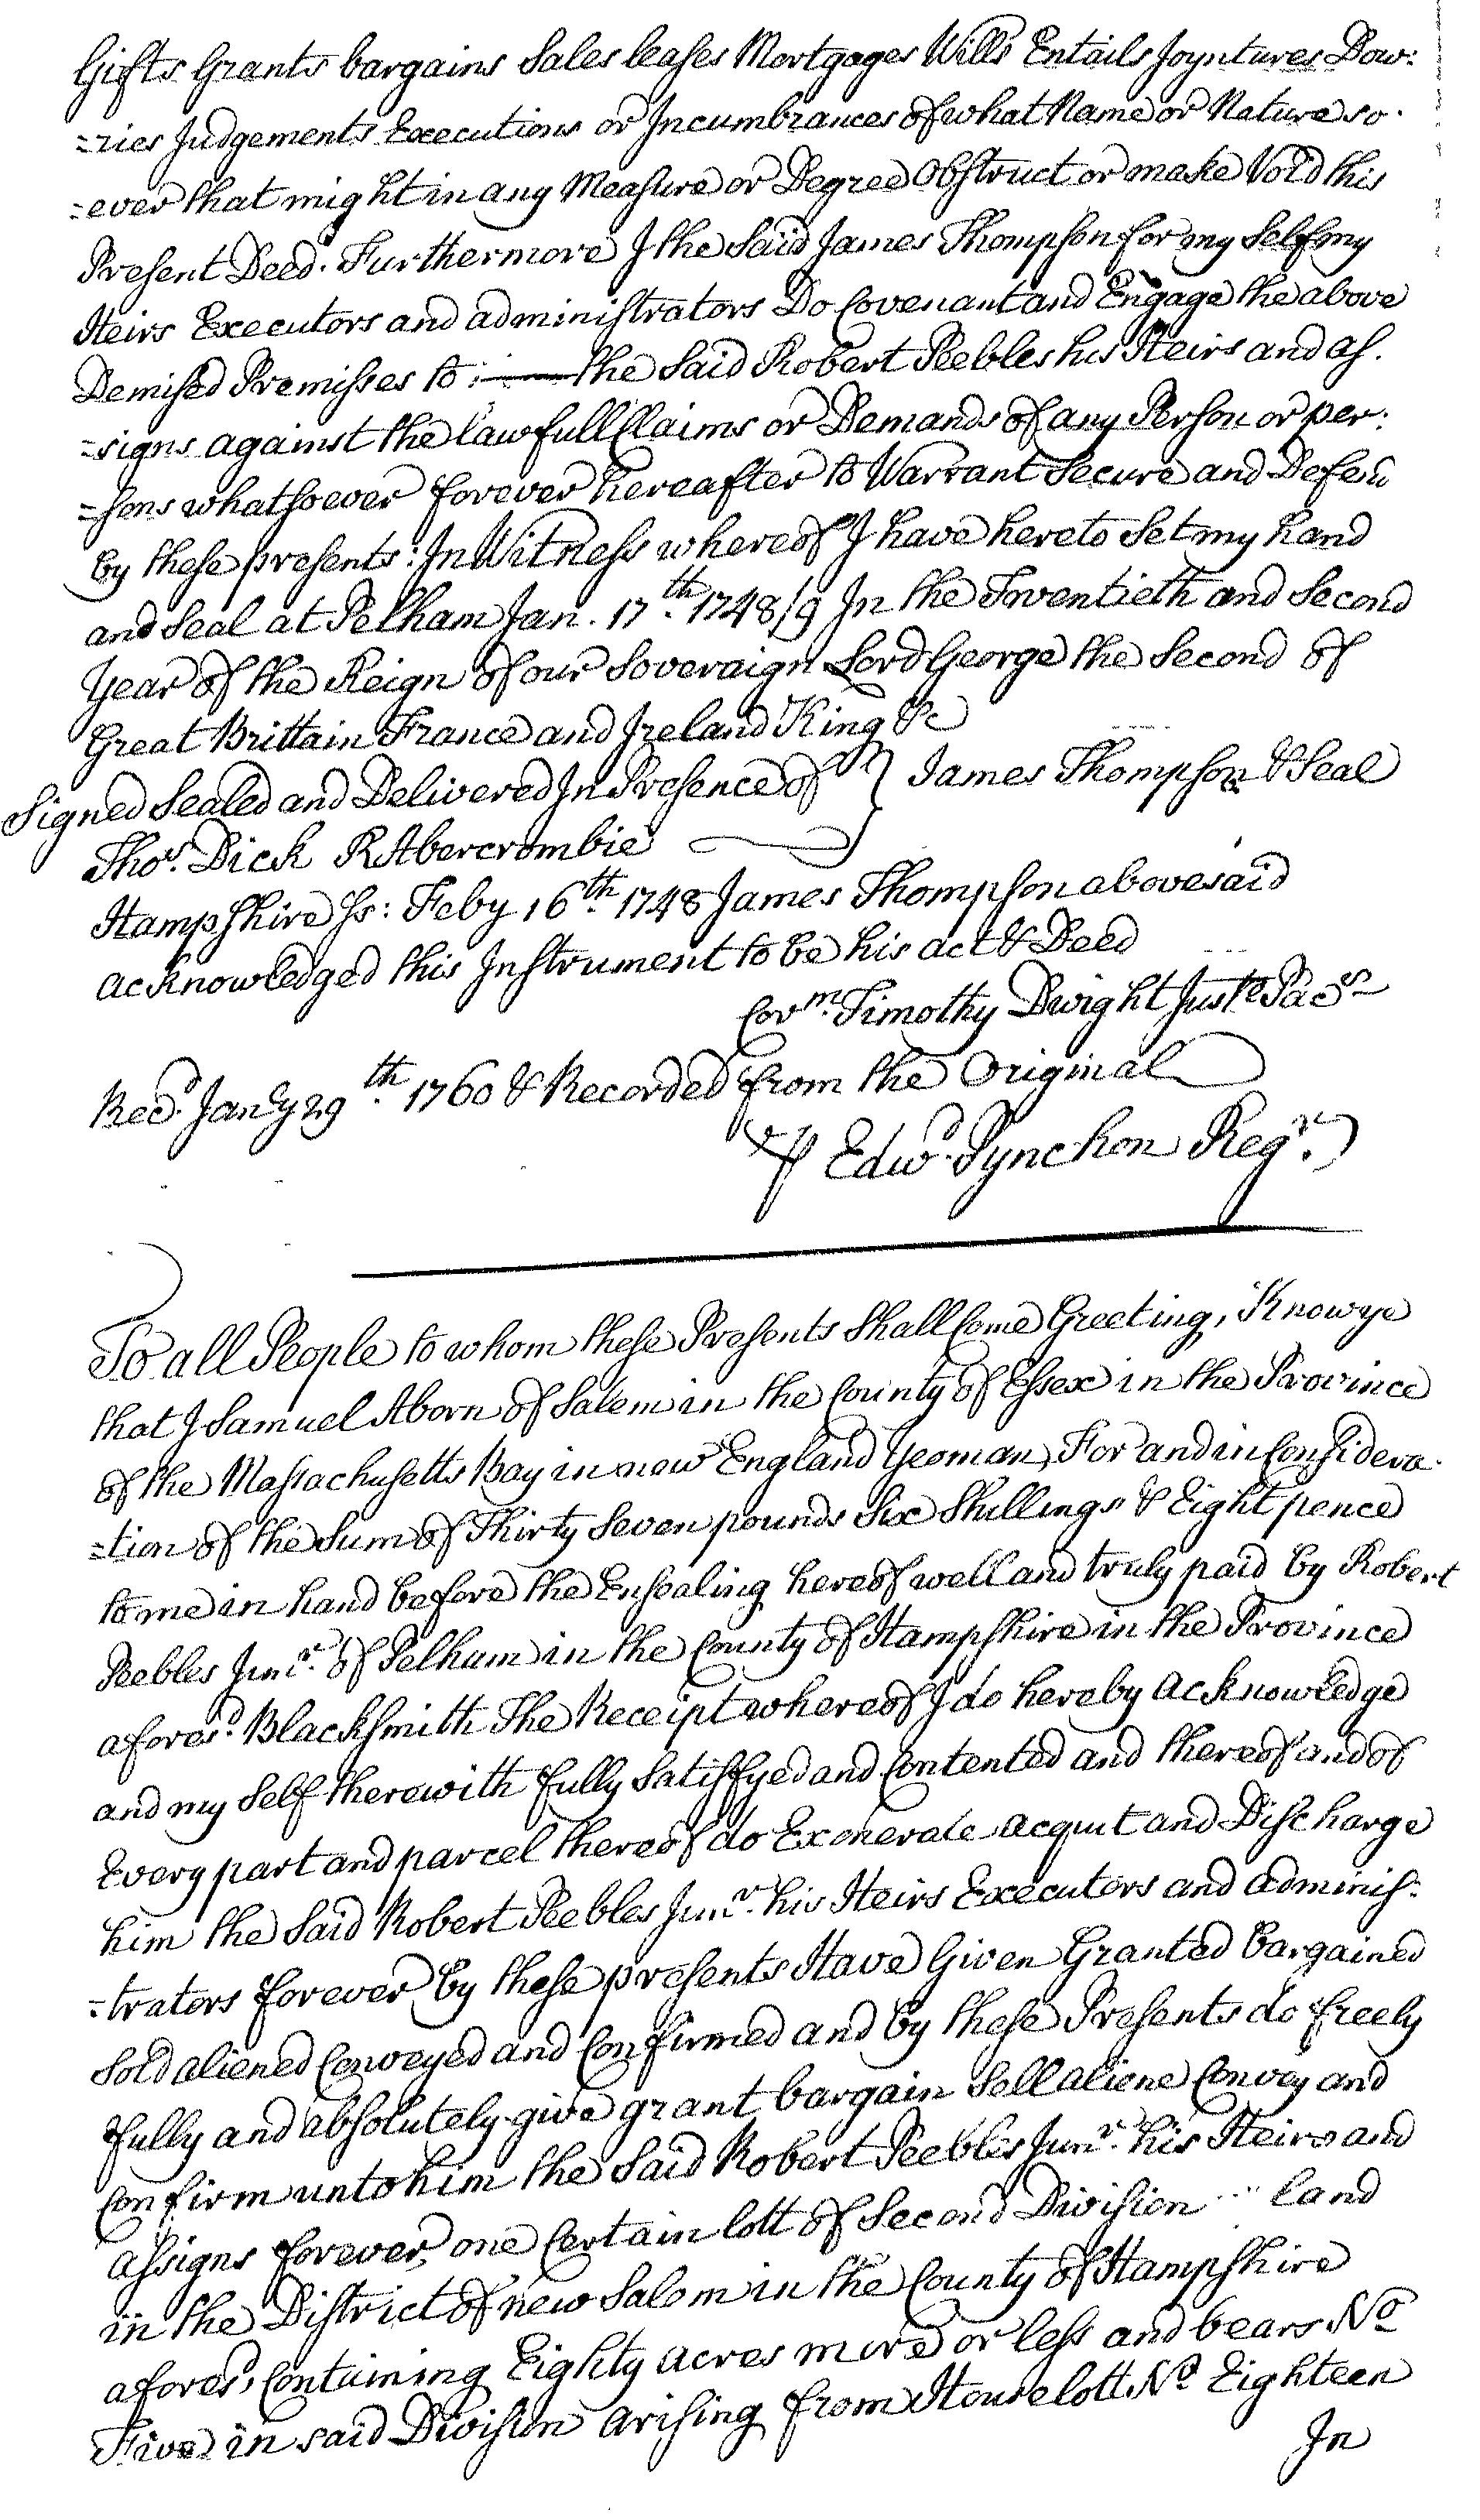 Gifts Grants bargains Sales leases Mortgages Wills Entails Joyntures Dow:
=ries Judgements Executions or Incumbrances of what Name or Nature so.
=ever that might in any Measure or Degree Obstruct or make Void this
Present Deed. Furthermore I the Said James Thompson for my Self my
Heirs Executors and administrators Do Covenant and Engage the above
Demised Premisses to the Said Robert Peebles his Heirs and as.
=signs against the lawfull Claims or Demands of any Person or per:
=sons whatsoever forever hereafter to Warrant Secure and Defend
by these presents: In Witness whereof I have hereto Set my hand
and Seal at Pelham Jan. 17th. 1748/9 In the Twentieth and Second
Year of the Reign of our Soveraign Lord George the Second of
Great Brittain France and Ireland King &c
Signed Sealed and Delivered In Presence of } James Thompson & Seal
Thos. Dick R Abercrombie
Hampshire Ss: Feby 16th. 1748 James Thompson abovesaid
acknowledged this Instrument to be his act & Deed
Corm. Timothy Dwight Juste Pacs
Recd. Jany 29th. 1760 & Recorded from the Original
⅌ Edwd. Pynchon Regr.
To all People to whom these Presents Shall Come Greeting, Know ye
that I Samuel Aborn of Salem in the County of Essex in the Province
of the Massachusetts Bay in new England Yeoman, For and in Considera-
=tion of the Sum of Thirty Seven pounds Six Shillings & Eight pence
to me in hand before the Ensealing hereof well and truly paid by Robert
Peebles Junr. of Pelham in the County of Hampshire in the Province
aforesd. Blacksmith The Receipt whereof I do hereby acknowledge
and my Self therewith fully Satisfyed and Contented and thereof and of
Every part and parcel thereof do Exonerate acquit and Discharge
him the Said Robert Peebles Junr. his Heirs Executors and adminis:
=trators forever by these presents Have Given Granted bargained
Sold aliened Conveyed and Confirmed and by these Presents do freely
fully and absolutely give grant bargain Sell aliene Convey and
Confirm unto him the Said Robert Peebles Junr. his Heirs and
assigns forever, one Certain lott of Second Division land
in the District of new Salem in the County of Hampshire
aforesd, Containing Eighty acres more or less and bears No
Five in said Division arising from House lott No Eighteen
In